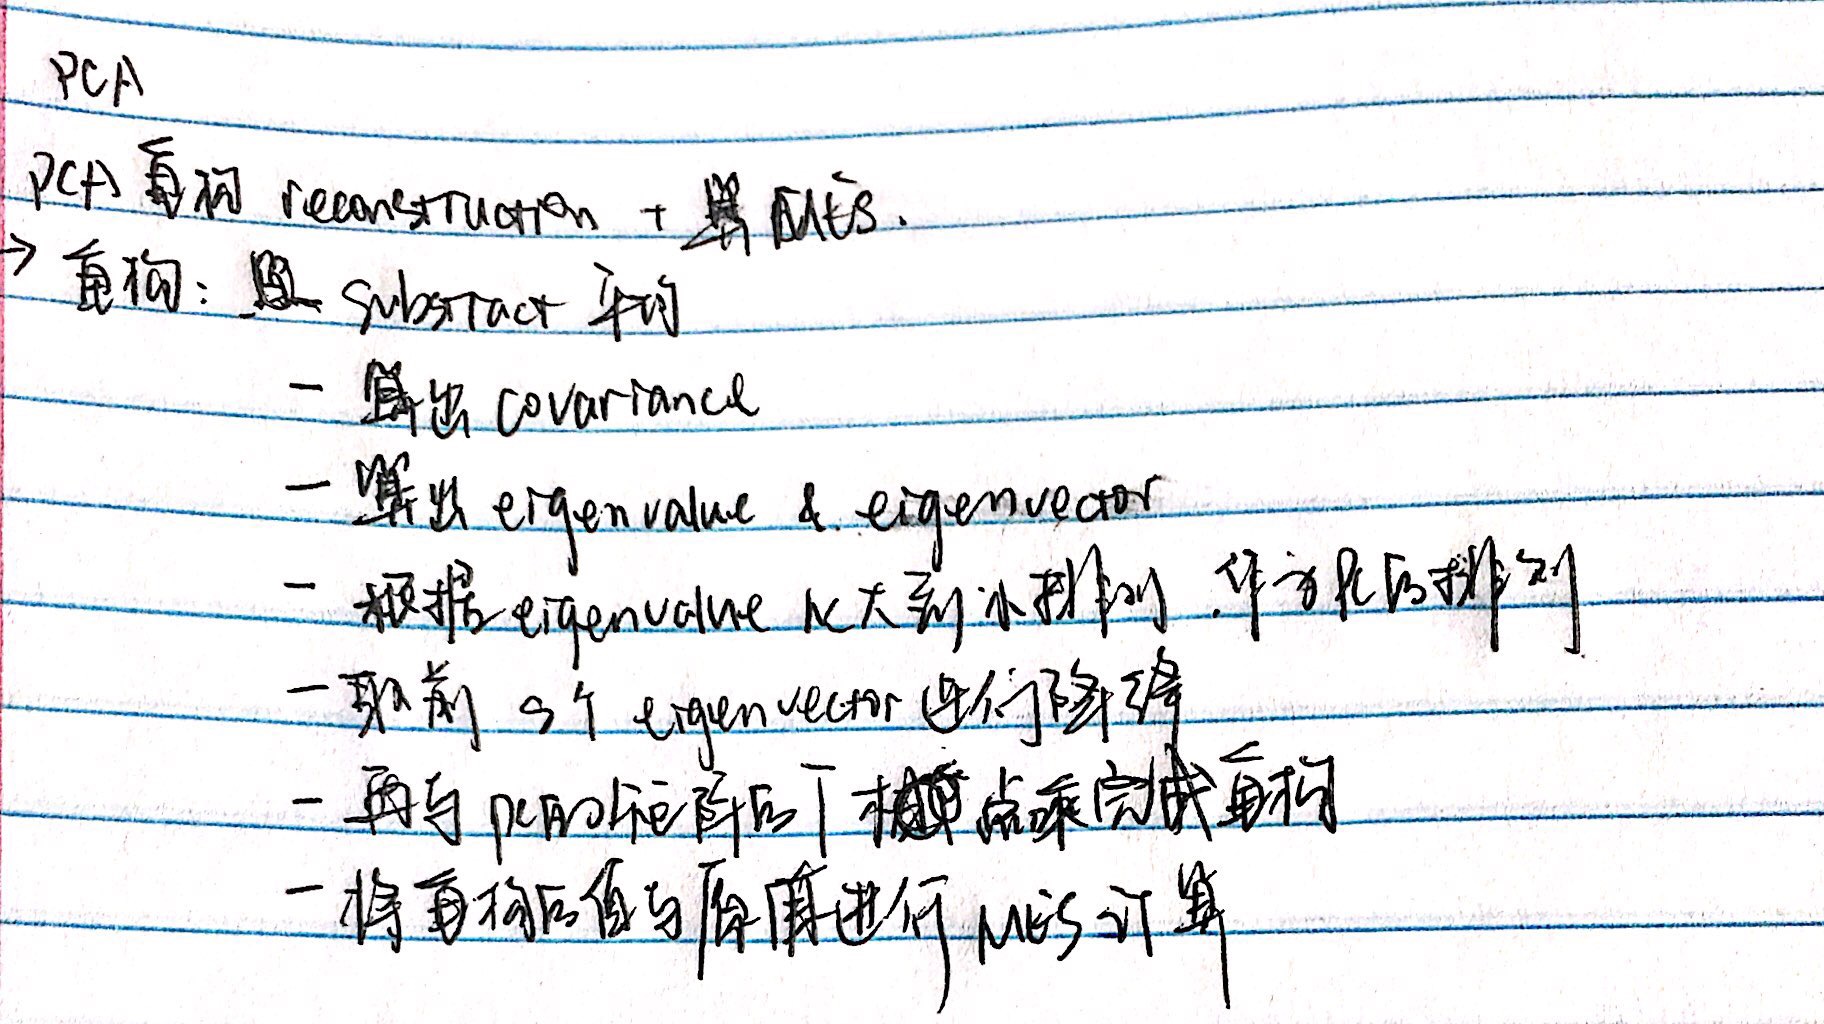 PCA
PCA 重构 reconstruction + 算 MES.
→ 重构: substract 平均
- 算出 covariance
- 算出 eigenvalue & eigenvector
- 根据 eigenvalue 从大到小排列
- 取前 5个 eigenvector 进行降维
- 再与 矩阵 点乘完成重构
- 将重构后值与原 进行 MES 计算